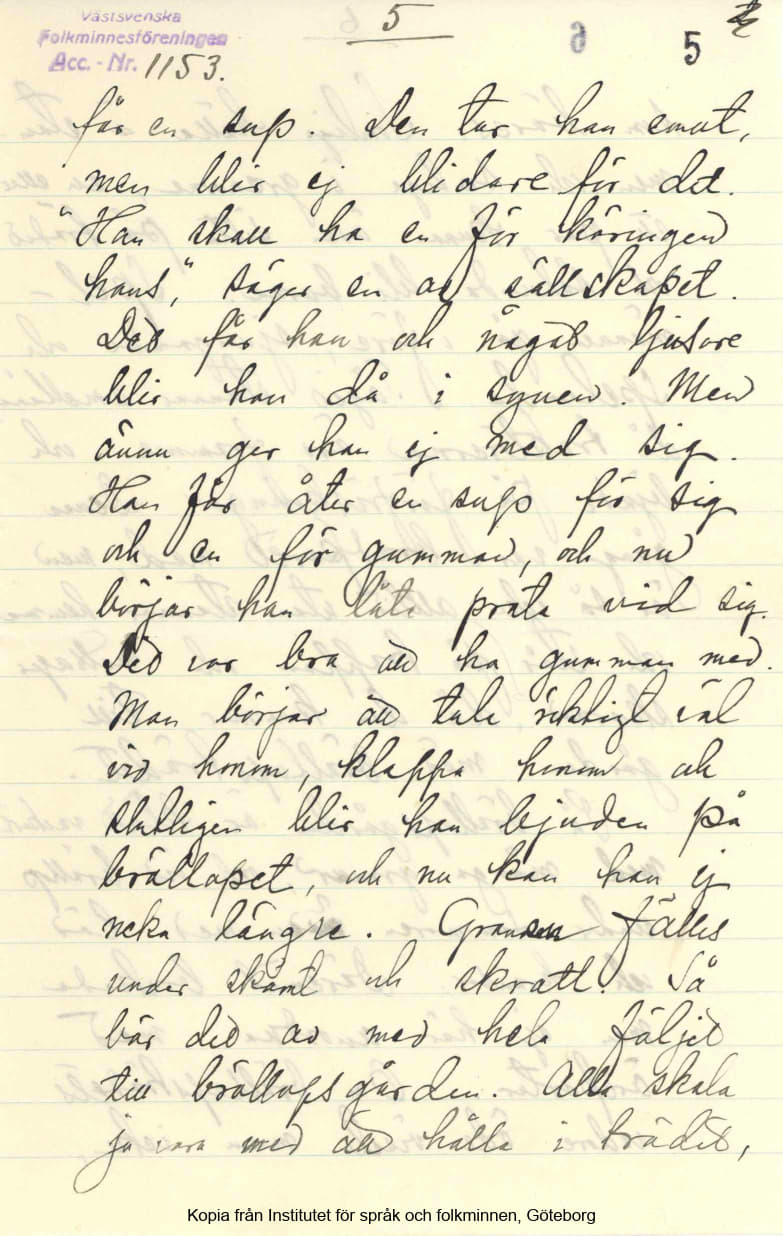 Västsvenska
Folkminnesföreningen
Acc. - Nr. 1153.
5
5
får en sup. Den tar han emot,
men blir ej blidare för det.
"Han skall ha en för käringen
hans", säger en av sällskapet.
Det får han och något ljusare
blir han då i synen. Men
ännu ger han ej med sig.
Han får åter en sup för sig
och en för gumman, och nu
börjar han låta prata vid sig.
Det var bra att ha gumman med.
Man börjar att tala riktigt väl
vid honom, klappa honom och
slutligen blir han bjuden på
bröllopet, och nu kan han ej
neka längre. Granen fälles
under skämt och skratt. Så
bär det av med hela följet
till bröllopsgården. Alla skola
ju vara med att hålla i trädet,
Kopia från Institutet för språk och folkminnen, Göteborg